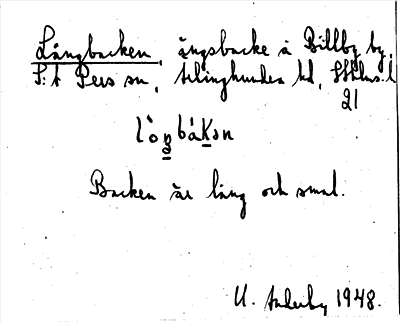 Långbacken, ängsbacke å Billby by,
S:t Pers sn, Erlinghundra hd, Sthlms. l
21
lòŋbákən
Backen är lång och smal.
U. Anderby 1948.